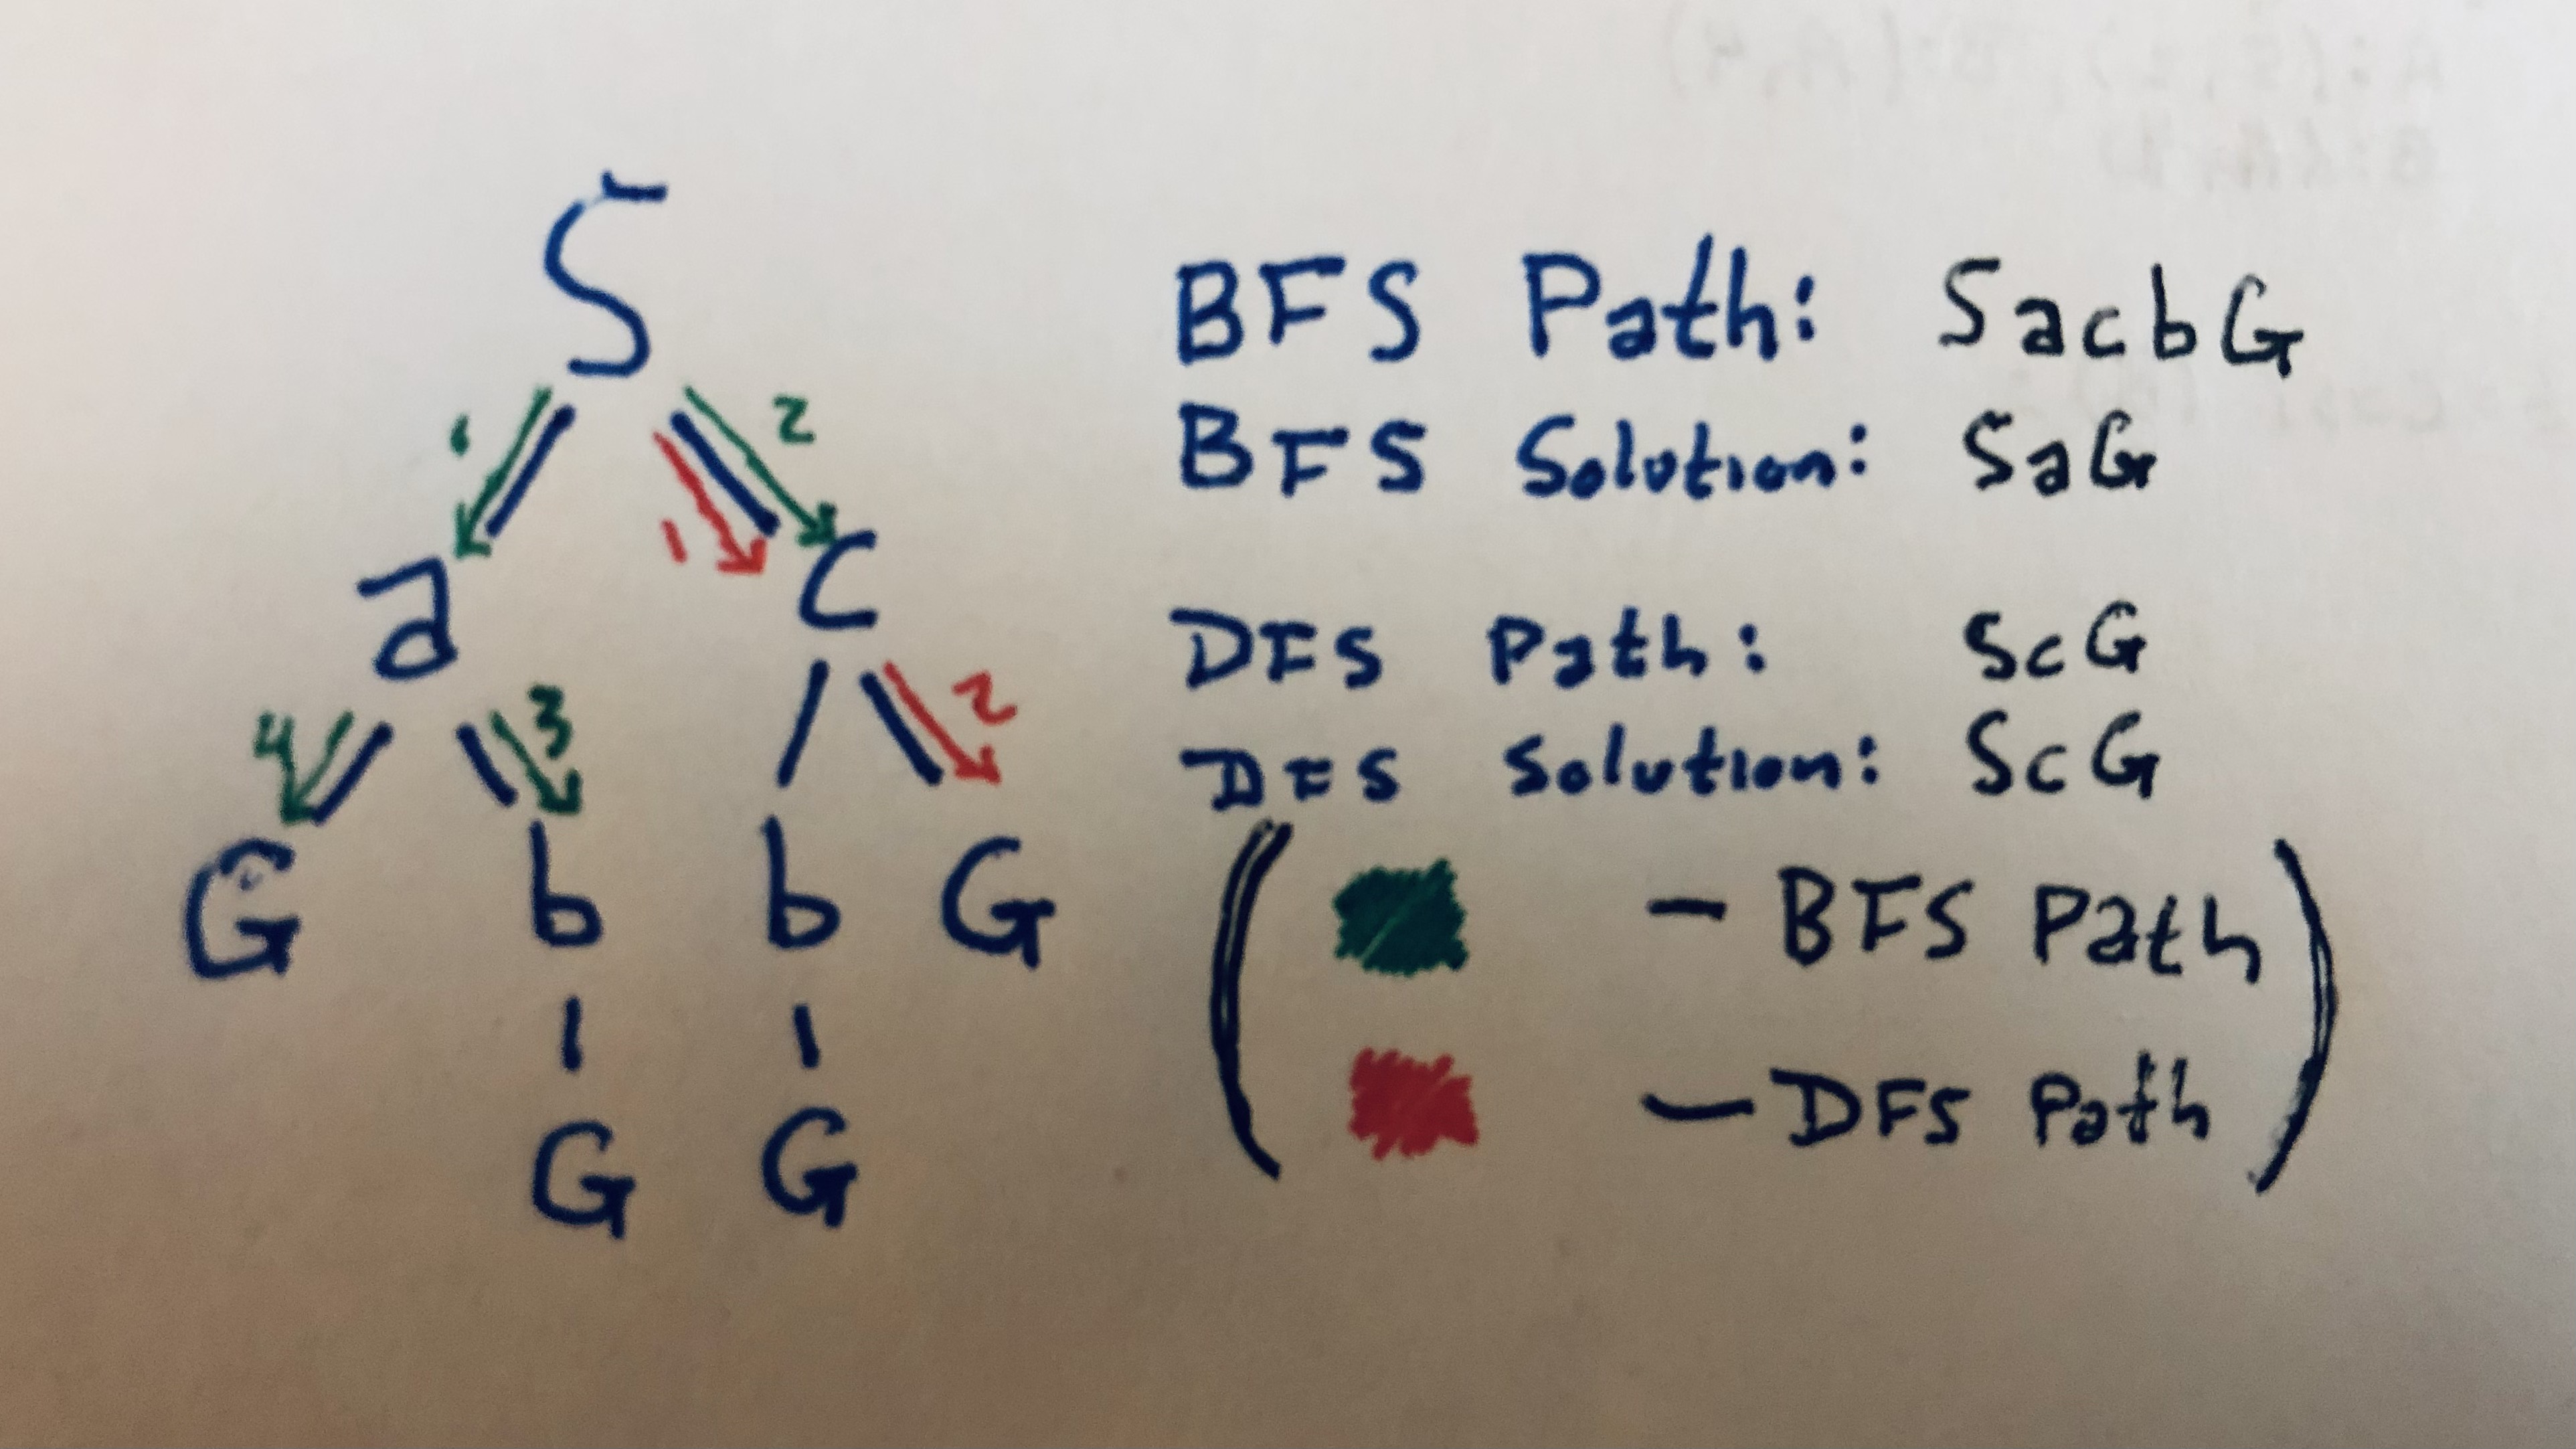 S
1 2
1
a c
4 3 2
G b b G
G G
BFS Path: SacbG
BFS Solution: SaG
DFS Path: ScG
DFS Solution: ScG
( - BFS Path
- DFS Path )